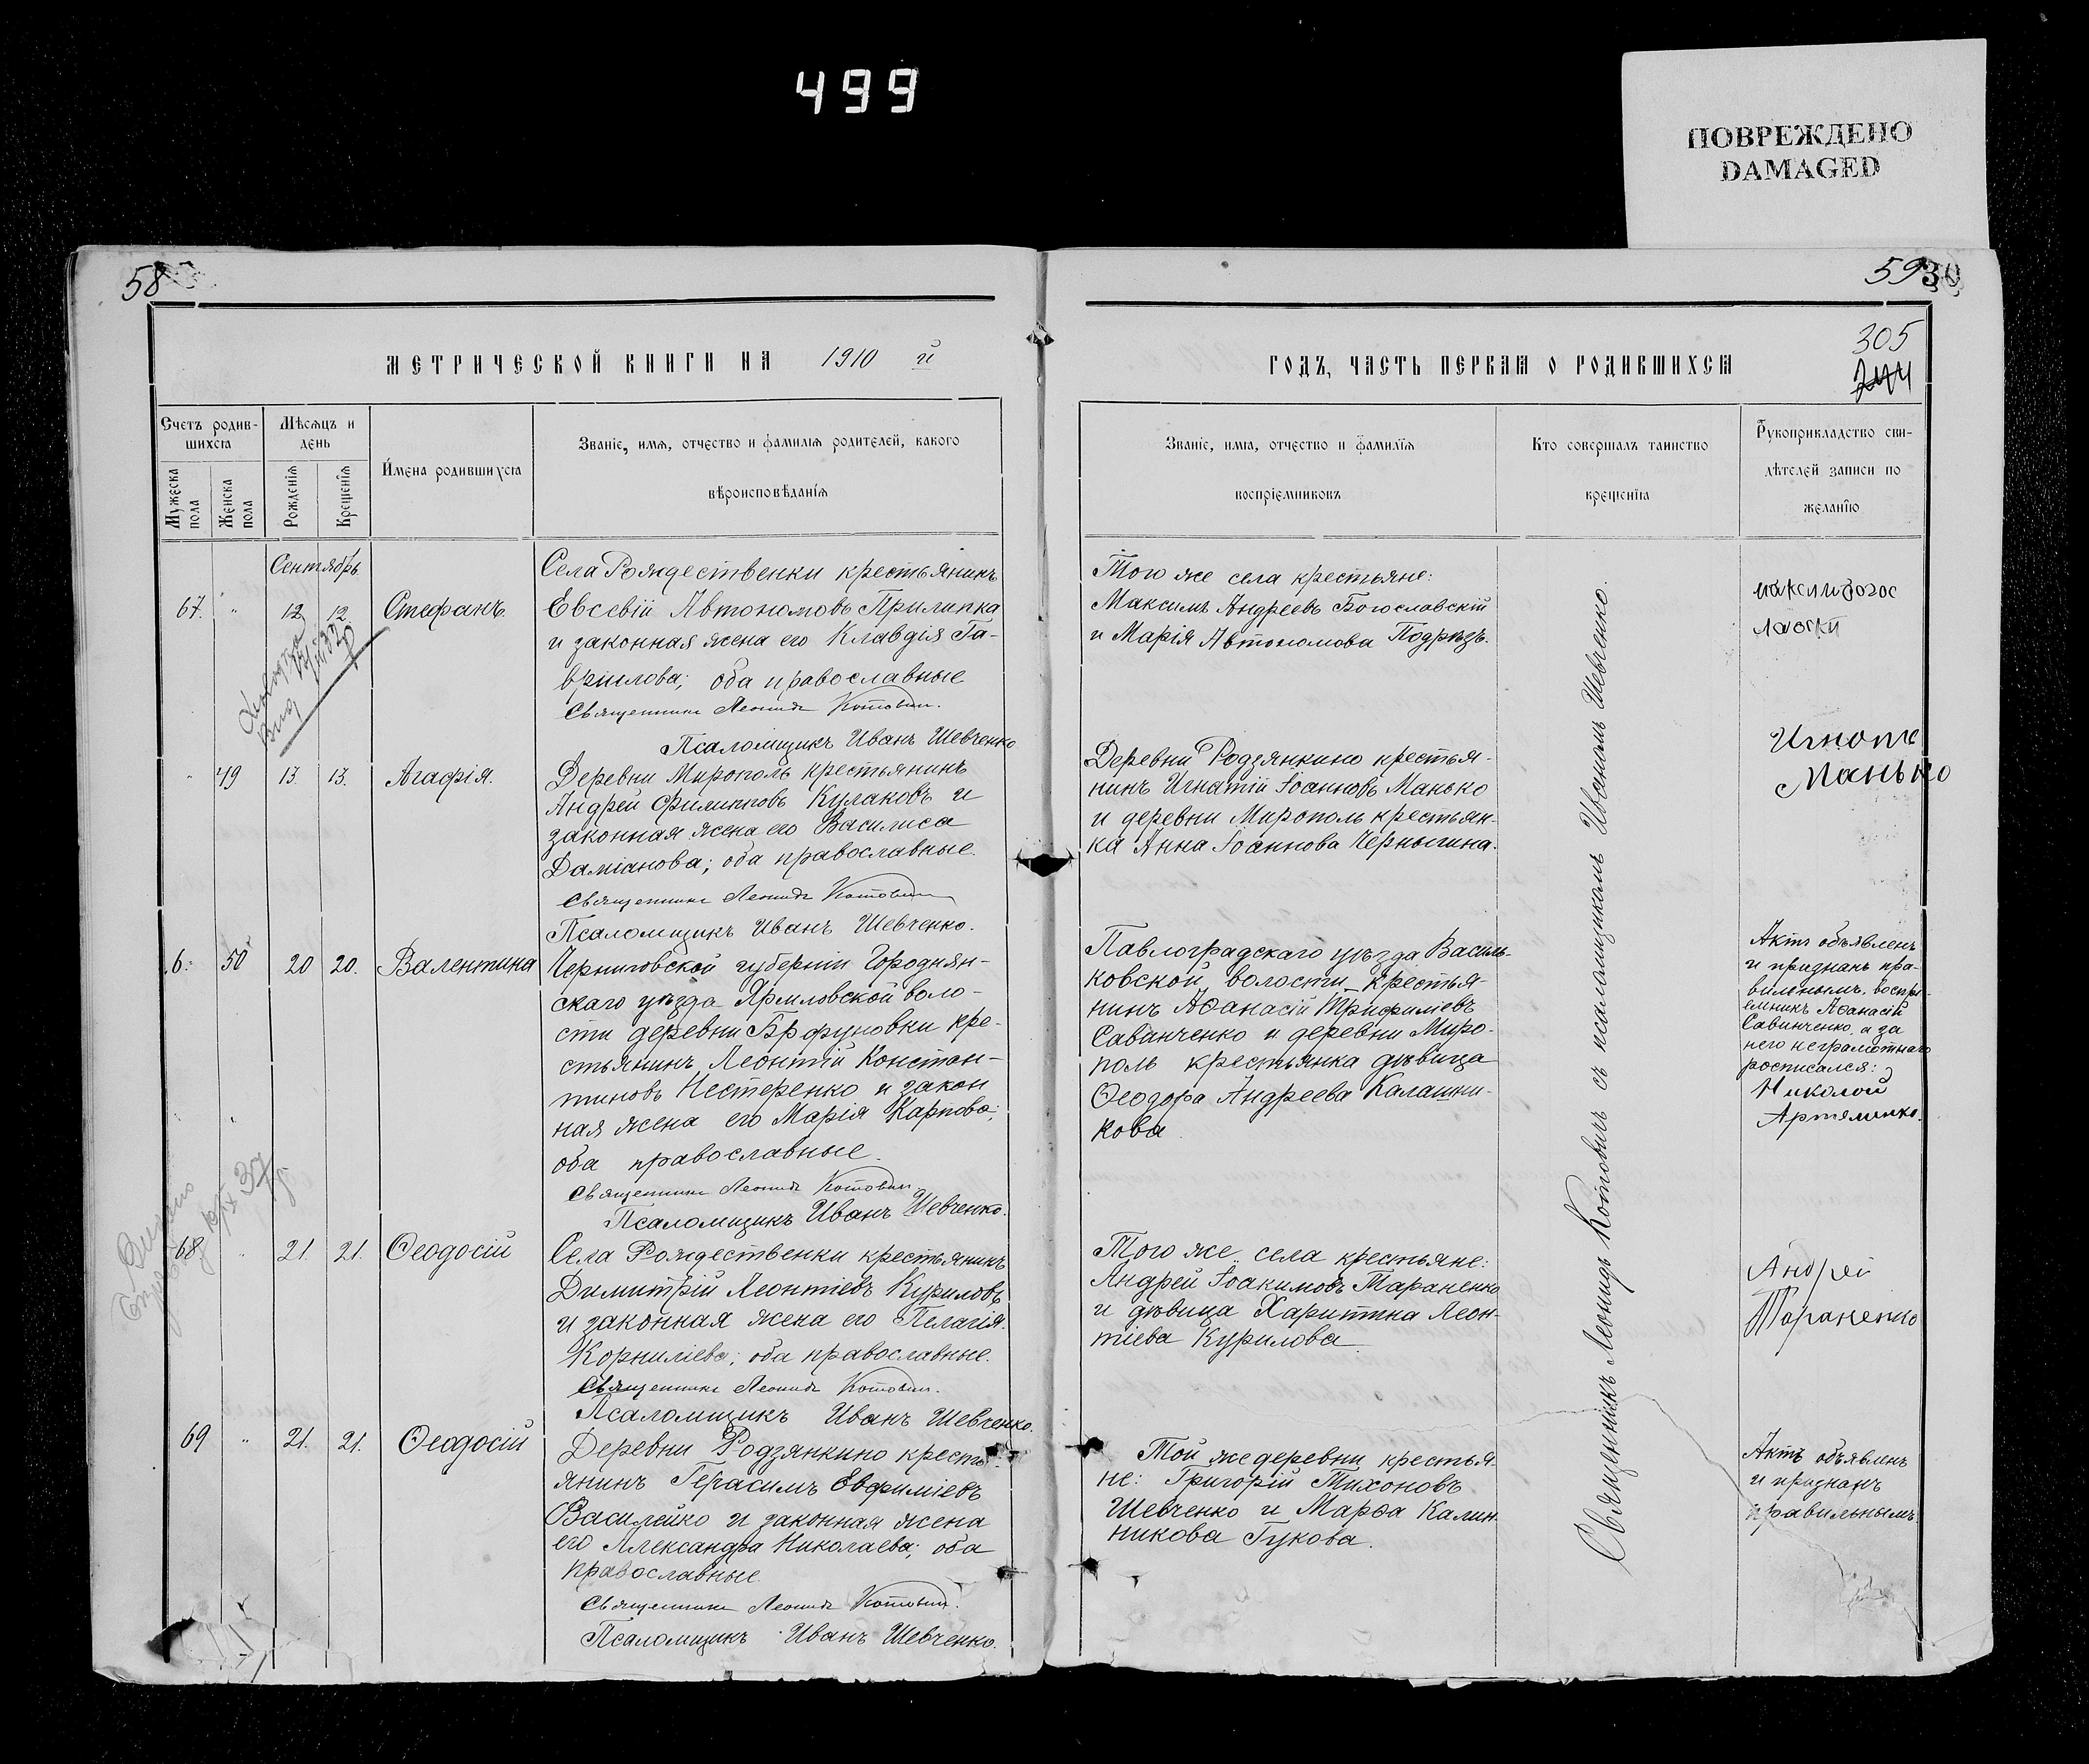 499
ПОВРЕЖДЕНО
DAMAGED
58
МЕТРИЧЕСКОЙ КНИГИ НА 1910 й
Счетъ родив-
шихся
Мужеска
пола
Женска
пола
Мѣсяцъ и
день
Рожденія
Крещенія
Имена родившихся
Званіе, имя, отчество и фамилія родителей, какого
вѣроисповѣданія
Сентябрь.
67. " 12 12. Стефанъ.
Села Рождественки крестьянинъ
Евсевій Автономовъ Прилипка
и законная жена его Клавдія Га-
вріилова; оба православные
Священникъ Леонидъ Котович.
Псаломщикъ Иванъ Шевченко
" 49 13. 13. Агафія.
Деревни Мирополь крестьянинъ
Андрей Филипповъ Кулаковъ и
законная жена его Василиса
Даміанова; оба православные.
Священникъ Леонидъ Котович
Псаломщикъ Иванъ Шевченко.
50 20 20. Валентина
Черниговской губерніи Городнян-
скаго уѣзда Ярмловской воло-
сти деревни кре-
стьянинъ Леонтій Констан-
тиновъ Нестеренко и закон
ная жена его Марія Карпова;
оба православные.
Священникъ Леонидъ Котович
Псаломщикъ Иванъ Шевченко.
68 " 21. 21. Ѳеодосій
Села Рождественки крестьянинъ
Димитрій Леонтіевъ Куриловъ
и законная жена его Пелагія
Корниліева; оба православные.
Священникъ Леонидъ Котович.
Псаломщикъ Иванъ Шевченко.
69 " 21. 21. Ѳеодосій
Деревни Родзянкино кресть-
янинъ Герасимъ Евфиміевъ
Василейко и законная жена
его Александра Николаева; оба
православные.
Священникъ Леонидъ Котович.
Псаломщикъ Иванъ Шевченко.
59
305
ГОДЪ, ЧАСТЬ ПЕРВАЯ О РОДИВШИХСЯ
Званіе, имя, отчество и фамилія
воспріемниковъ
Кто совершалъ таинство
крещенія
Рукоприкладство сви-
дѣтелей записи по
желанію
Того же села крестьяне:
Максимъ Андреевъ Богославскій
и Марія Автономова Подрѣзъ.
Деревни Родзянкино крестья-
нинъ Игнатій Іоанновъ Манько
и деревни Мирополь крестьян-
ка Анна Іоаннова Чернигина.
Манько
Павлоградскаго уѣзда Василь-
ковской волости крестья-
нинъ Аѳанасій Трифиліевъ
Саванченко и деревни Миро-
поль крестьянка дѣвица
Ѳеодора Андреева Калашни-
кова
Актъ объявленъ
и признанъ пра-
вильнымъ. воспрі-
емникъ Аѳанасій
Савинченко, а за
него неграмотнаго
росписался:
Николай
Артеменко.
Того же села крестьяне:
Андрей Іоакимовъ Тараненко
и дѣвица Харитина Леон-
тіева Курилова
Андрей
Тараненко
Той же деревни крестья
не: Григорій Тихоновъ
Шевченко и Марѳа Калин
никова Гукова.
Актъ объявленъ
и признанъ
правильнымъ
Священникъ Леонидъ Котовичъ съ псаломщикомъ Иваномъ Шевченко.